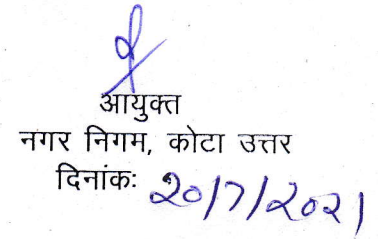 आयुक्त
नगर निगम, कोटा उत्तर
दिनांकः 20/7/2021